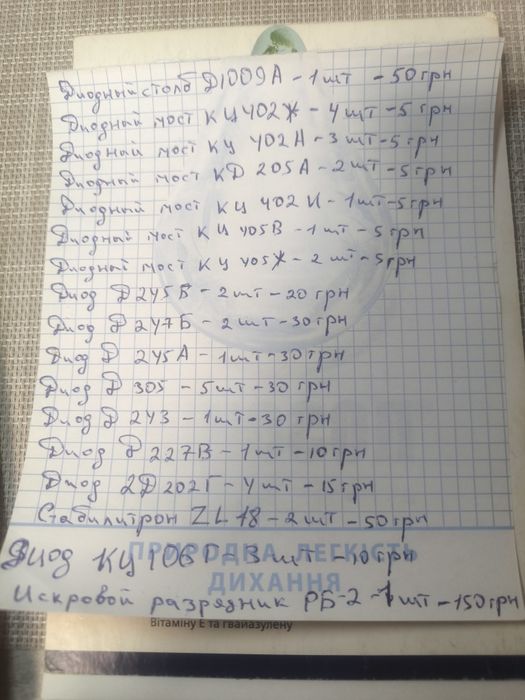 Диодный столб Д1009А - 1 шт - 50 грн
Диодный мост КЦ 402Ж - 4 шт - 5 грн
Диодный мост КЦ 402А - 3 шт - 5 грн
Диодный мост КД 205А - 2 шт - 5 грн
Диодный мост КЦ 402И - 1 шт - 5 грн
Диодный мост КЦ 405В - 1 шт - 5 грн
Диодный мост КЦ 405Ж - 2 шт - 5 грн
Диод Д 245Б - 2 шт - 20 грн
Диод Д 247Б - 2 шт - 30 грн
Диод Д 245А - 1 шт - 30 грн
Диод Д 305 - 5 шт - 30 грн
Диод Д 243 - 1 шт - 30 грн
Диод Д 227В - 1 шт - 10 грн
Диод 2Д 202Г - 4 шт - 15 грн
Стабилитрон ZL 18 - 2 шт - 50 грн
Диод КЦ 106Г - 3 шт - 10 грн
ПРИРОДНА ЛЕГКІСТЬ
ДИХАННЯ
Искровой разрядник РБ-2 - 1 шт - 150 грн
Вітаміну Е та гвайазулену